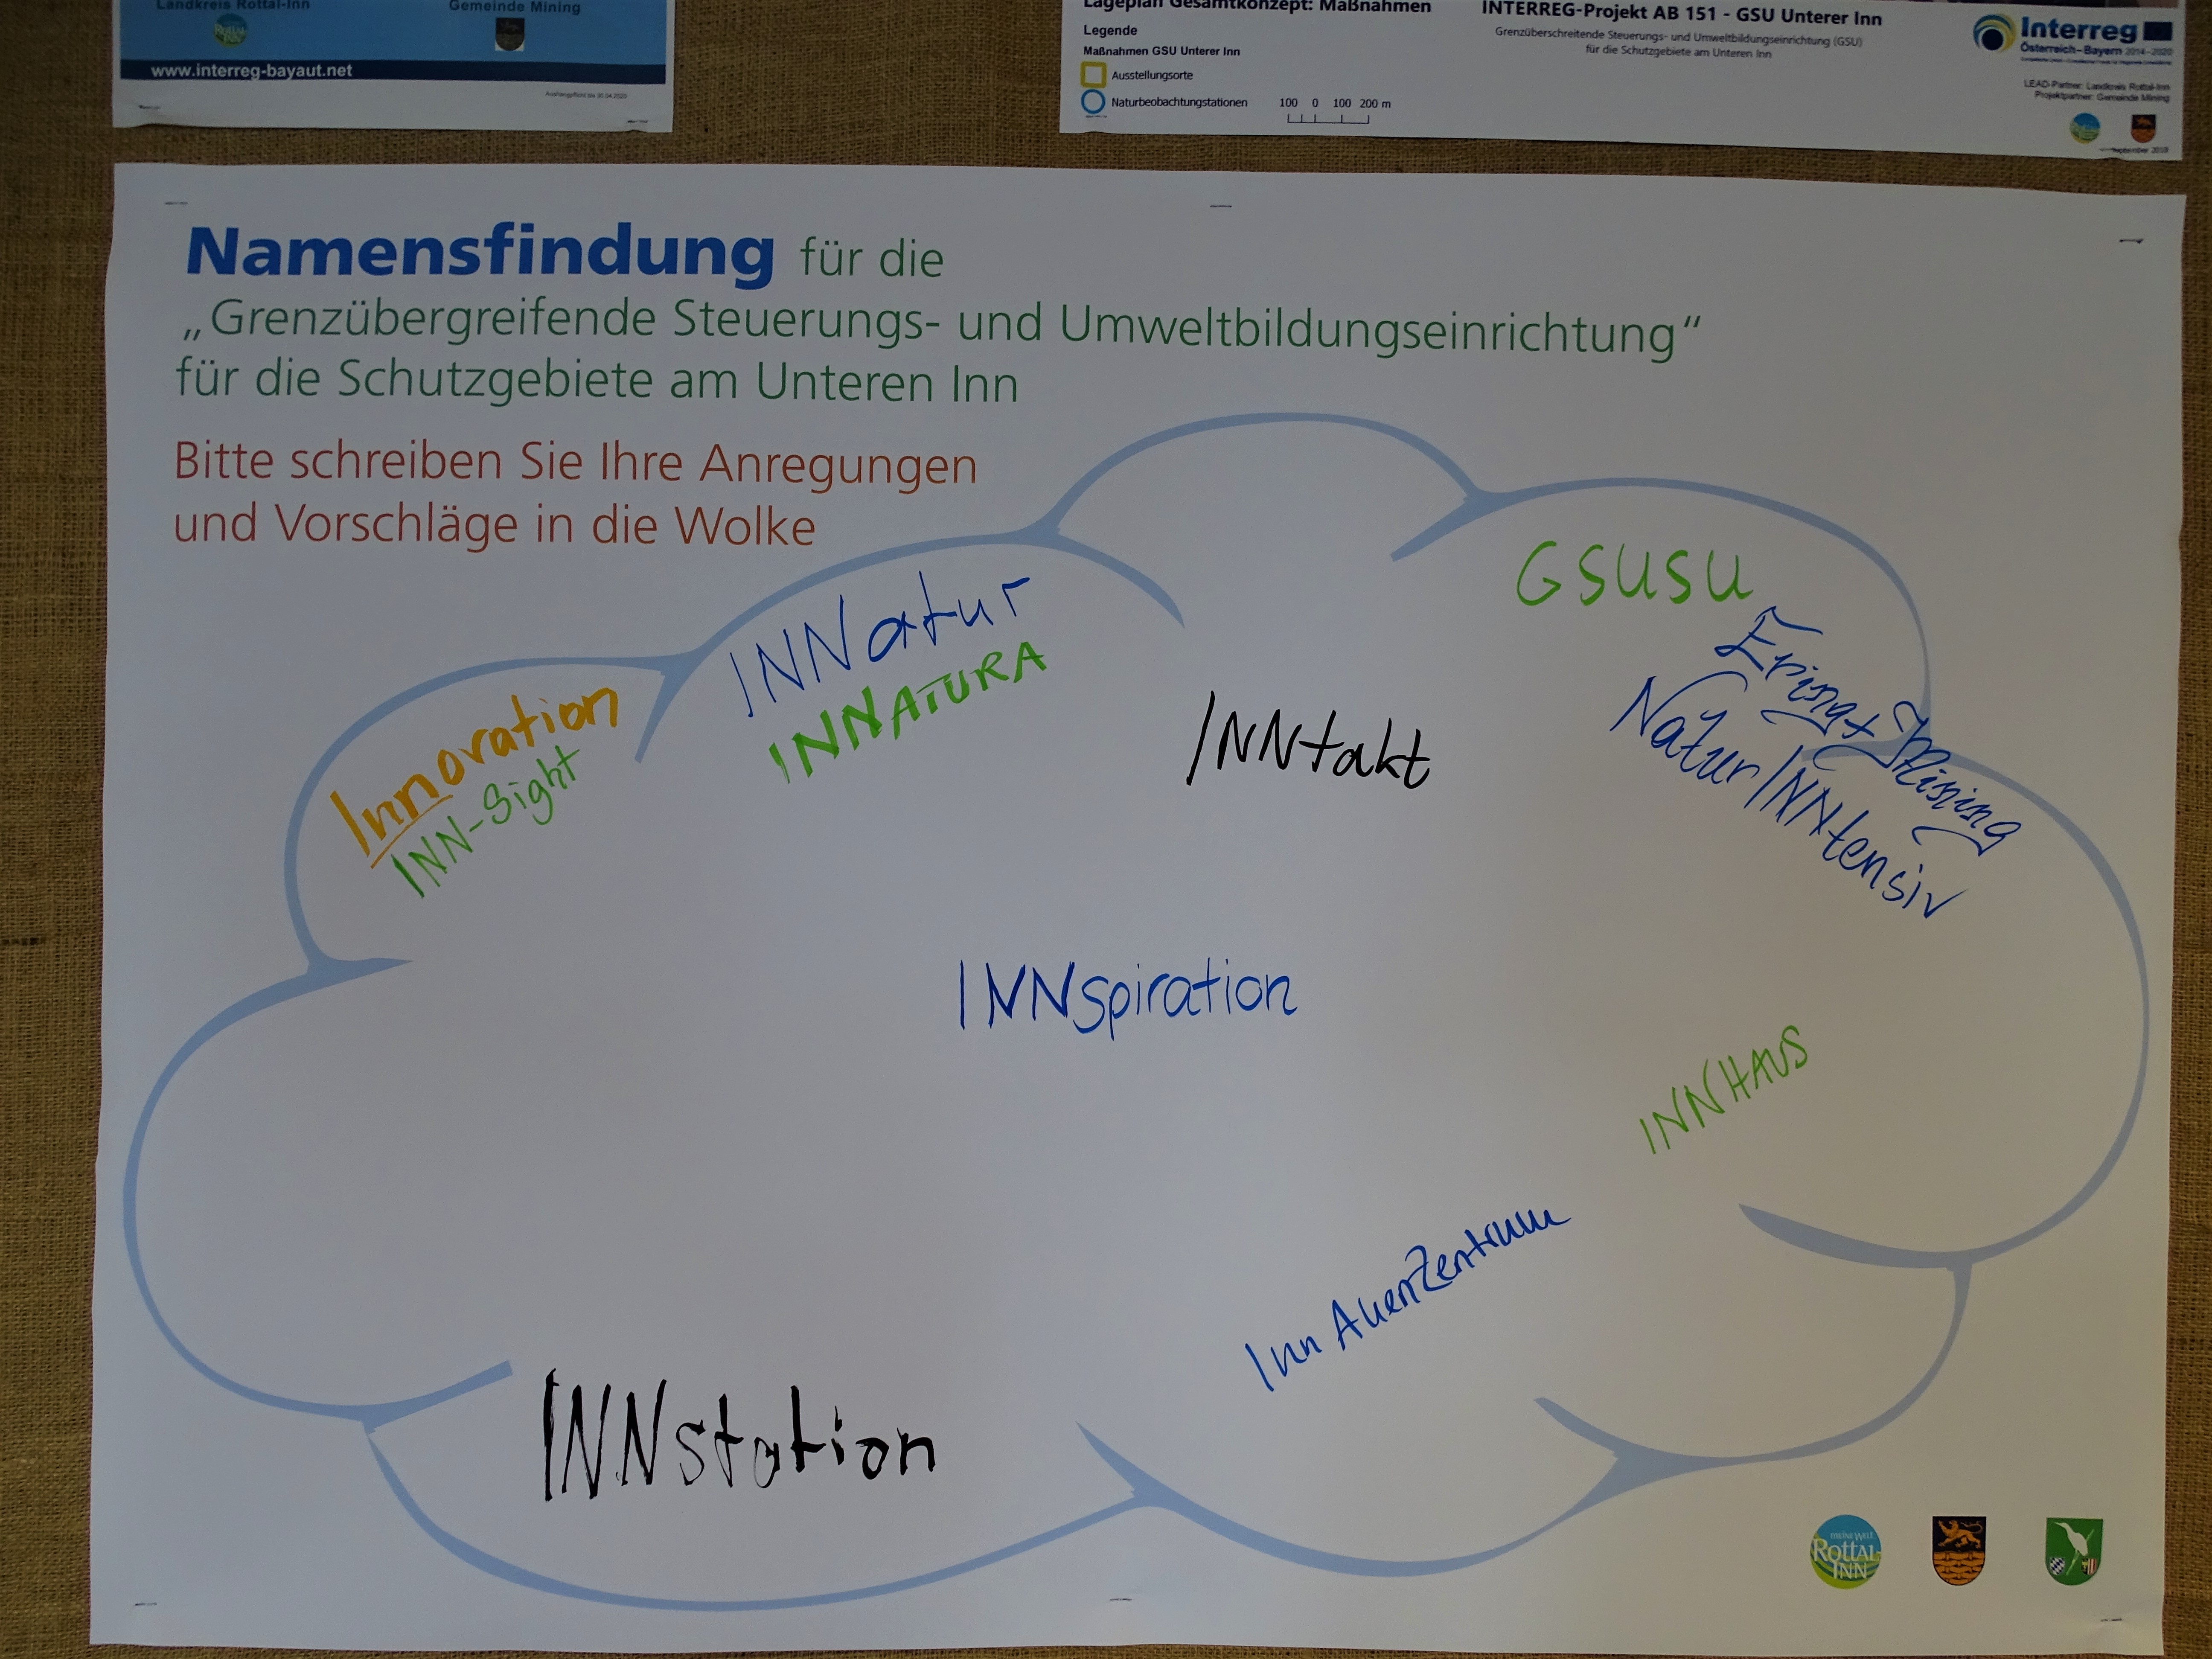 Landkreis Rottal-Inn
Gemeinde Mining
www.interreg-bayaut.net
Lageplan Gesamtkonzept: Maßnahmen
Legende
Maßnahmen GSU Unterer Inn
Ausstellungsorte
Naturbeobachtungstationen
100 0 100 200 m
INTERREG-Projekt AB 151 - GSU Unterer Inn
Grenzüberschreitende Steuerungs- und Umweltbildungseinrichtung (GSU)
für die Schutzgebiete am Unteren Inn
Interreg
Österreich-Bayern 2014-2020
LEAD-Partner: Landkreis Rottal-Inn
Projektpartner: Gemeinde Mining
Namensfindung für die
„Grenzübergreifende Steuerungs- und Umweltbildungseinrichtung“
für die Schutzgebiete am Unteren Inn
Bitte schreiben Sie Ihre Anregungen
und Vorschläge in die Wolke
Innovation
INN-Sight
INNatur
INNATURA
INNtakt
GSUSU
Ering + Mining
Natur INNtensiv
INNspiration
INNHAUS
Inn AuenZentrum
INNstation
MEINE WELT
ROTTAL-
INN